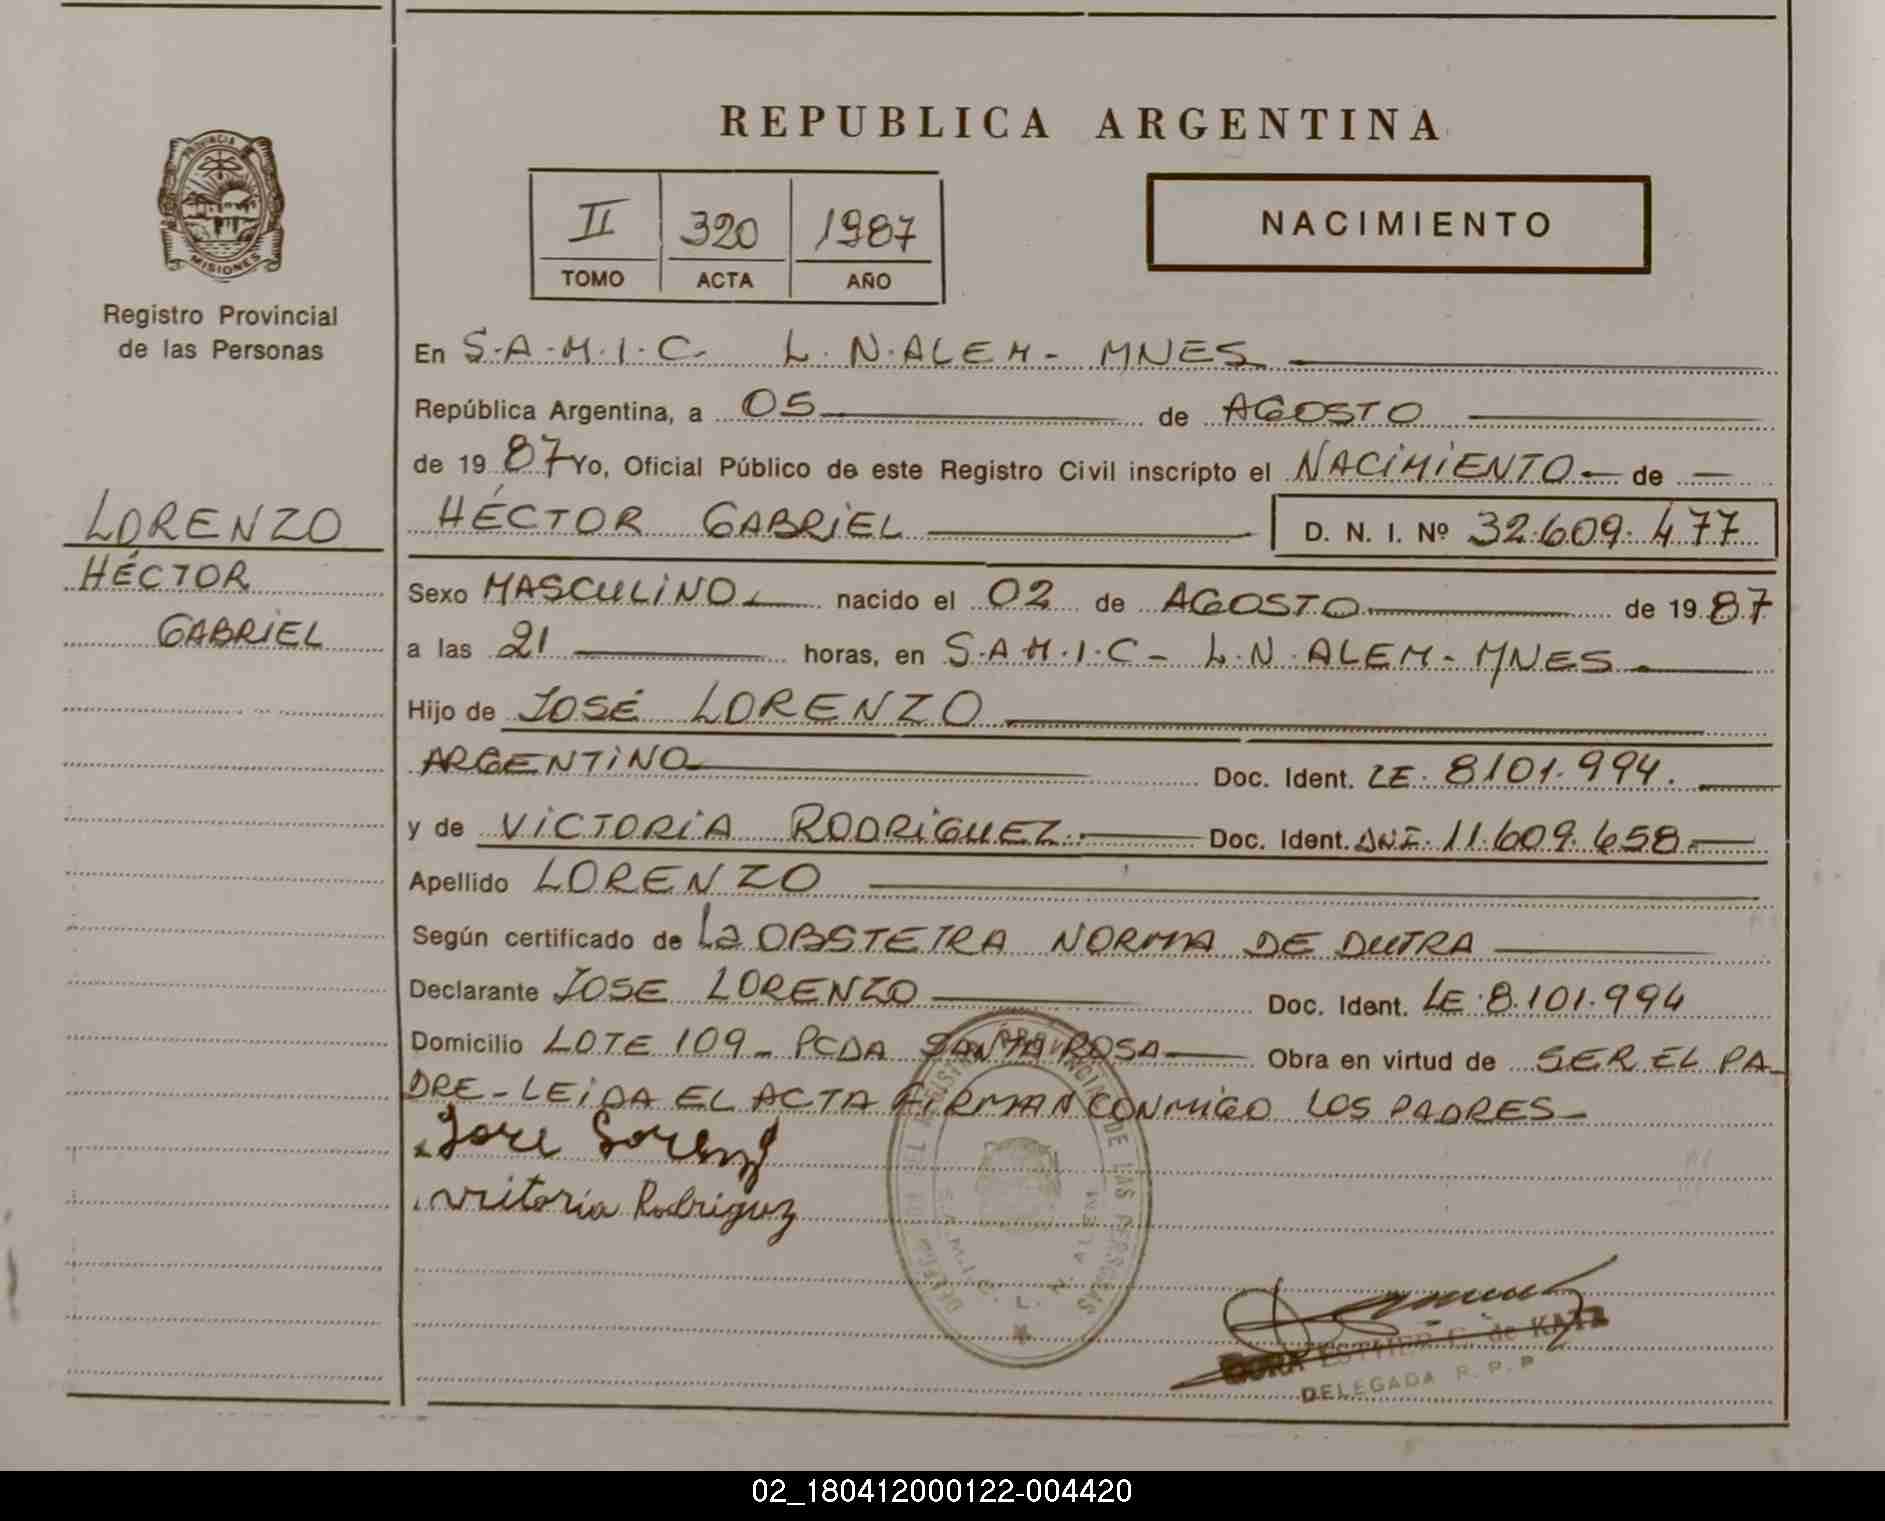 REPUBLICA ARGENTINA
PROVINCIA
MISIONES
Registro Provincial
de las Personas
II 320 1987
TOMO ACTA AÑO
NACIMIENTO
En S.A.M.I.C. L.N.ALEM- MNES
República Argentina, a 05 de AGOSTO
de 1987 Yo, Oficial Público de este Registro Civil inscripto el NACIMIENTO — de —
HÉCTOR GABRIEL D. N. I. Nº 32.609.477
LORENZO
HÉCTOR
GABRIEL
Sexo MASCULINO nacido el 02 de AGOSTO de 1987
a las 21 horas, en S.A.M.I.C- L.N.ALEM- MNES
Hijo de JOSÉ LORENZO
ARGENTINO Doc. Ident. LE. 8101.994.
y de VICTORIA RODRIGUEZ. Doc. Ident. DNI. 11.609.658
Apellido LORENZO
Según certificado de La OBSTETRA NORMA DE DUTRA
Declarante JOSE LORENZO Doc. Ident. LE.8.101.994
Domicilio LOTE 109- PCDA SANTA ROSA Obra en virtud de SER EL PA_
DRE-LEIDA EL ACTA FIRMAN CONMIGO LOS PADRES-
Jose Lorenzo
Vritoria Rodriguz
PROVINCIAL DE LAS PERSONAS
S.A.M.I.C. L. N. ALEM
DORA ESTHER G. de KATZ
DELEGADA R.P.P
02_180412000122-004420